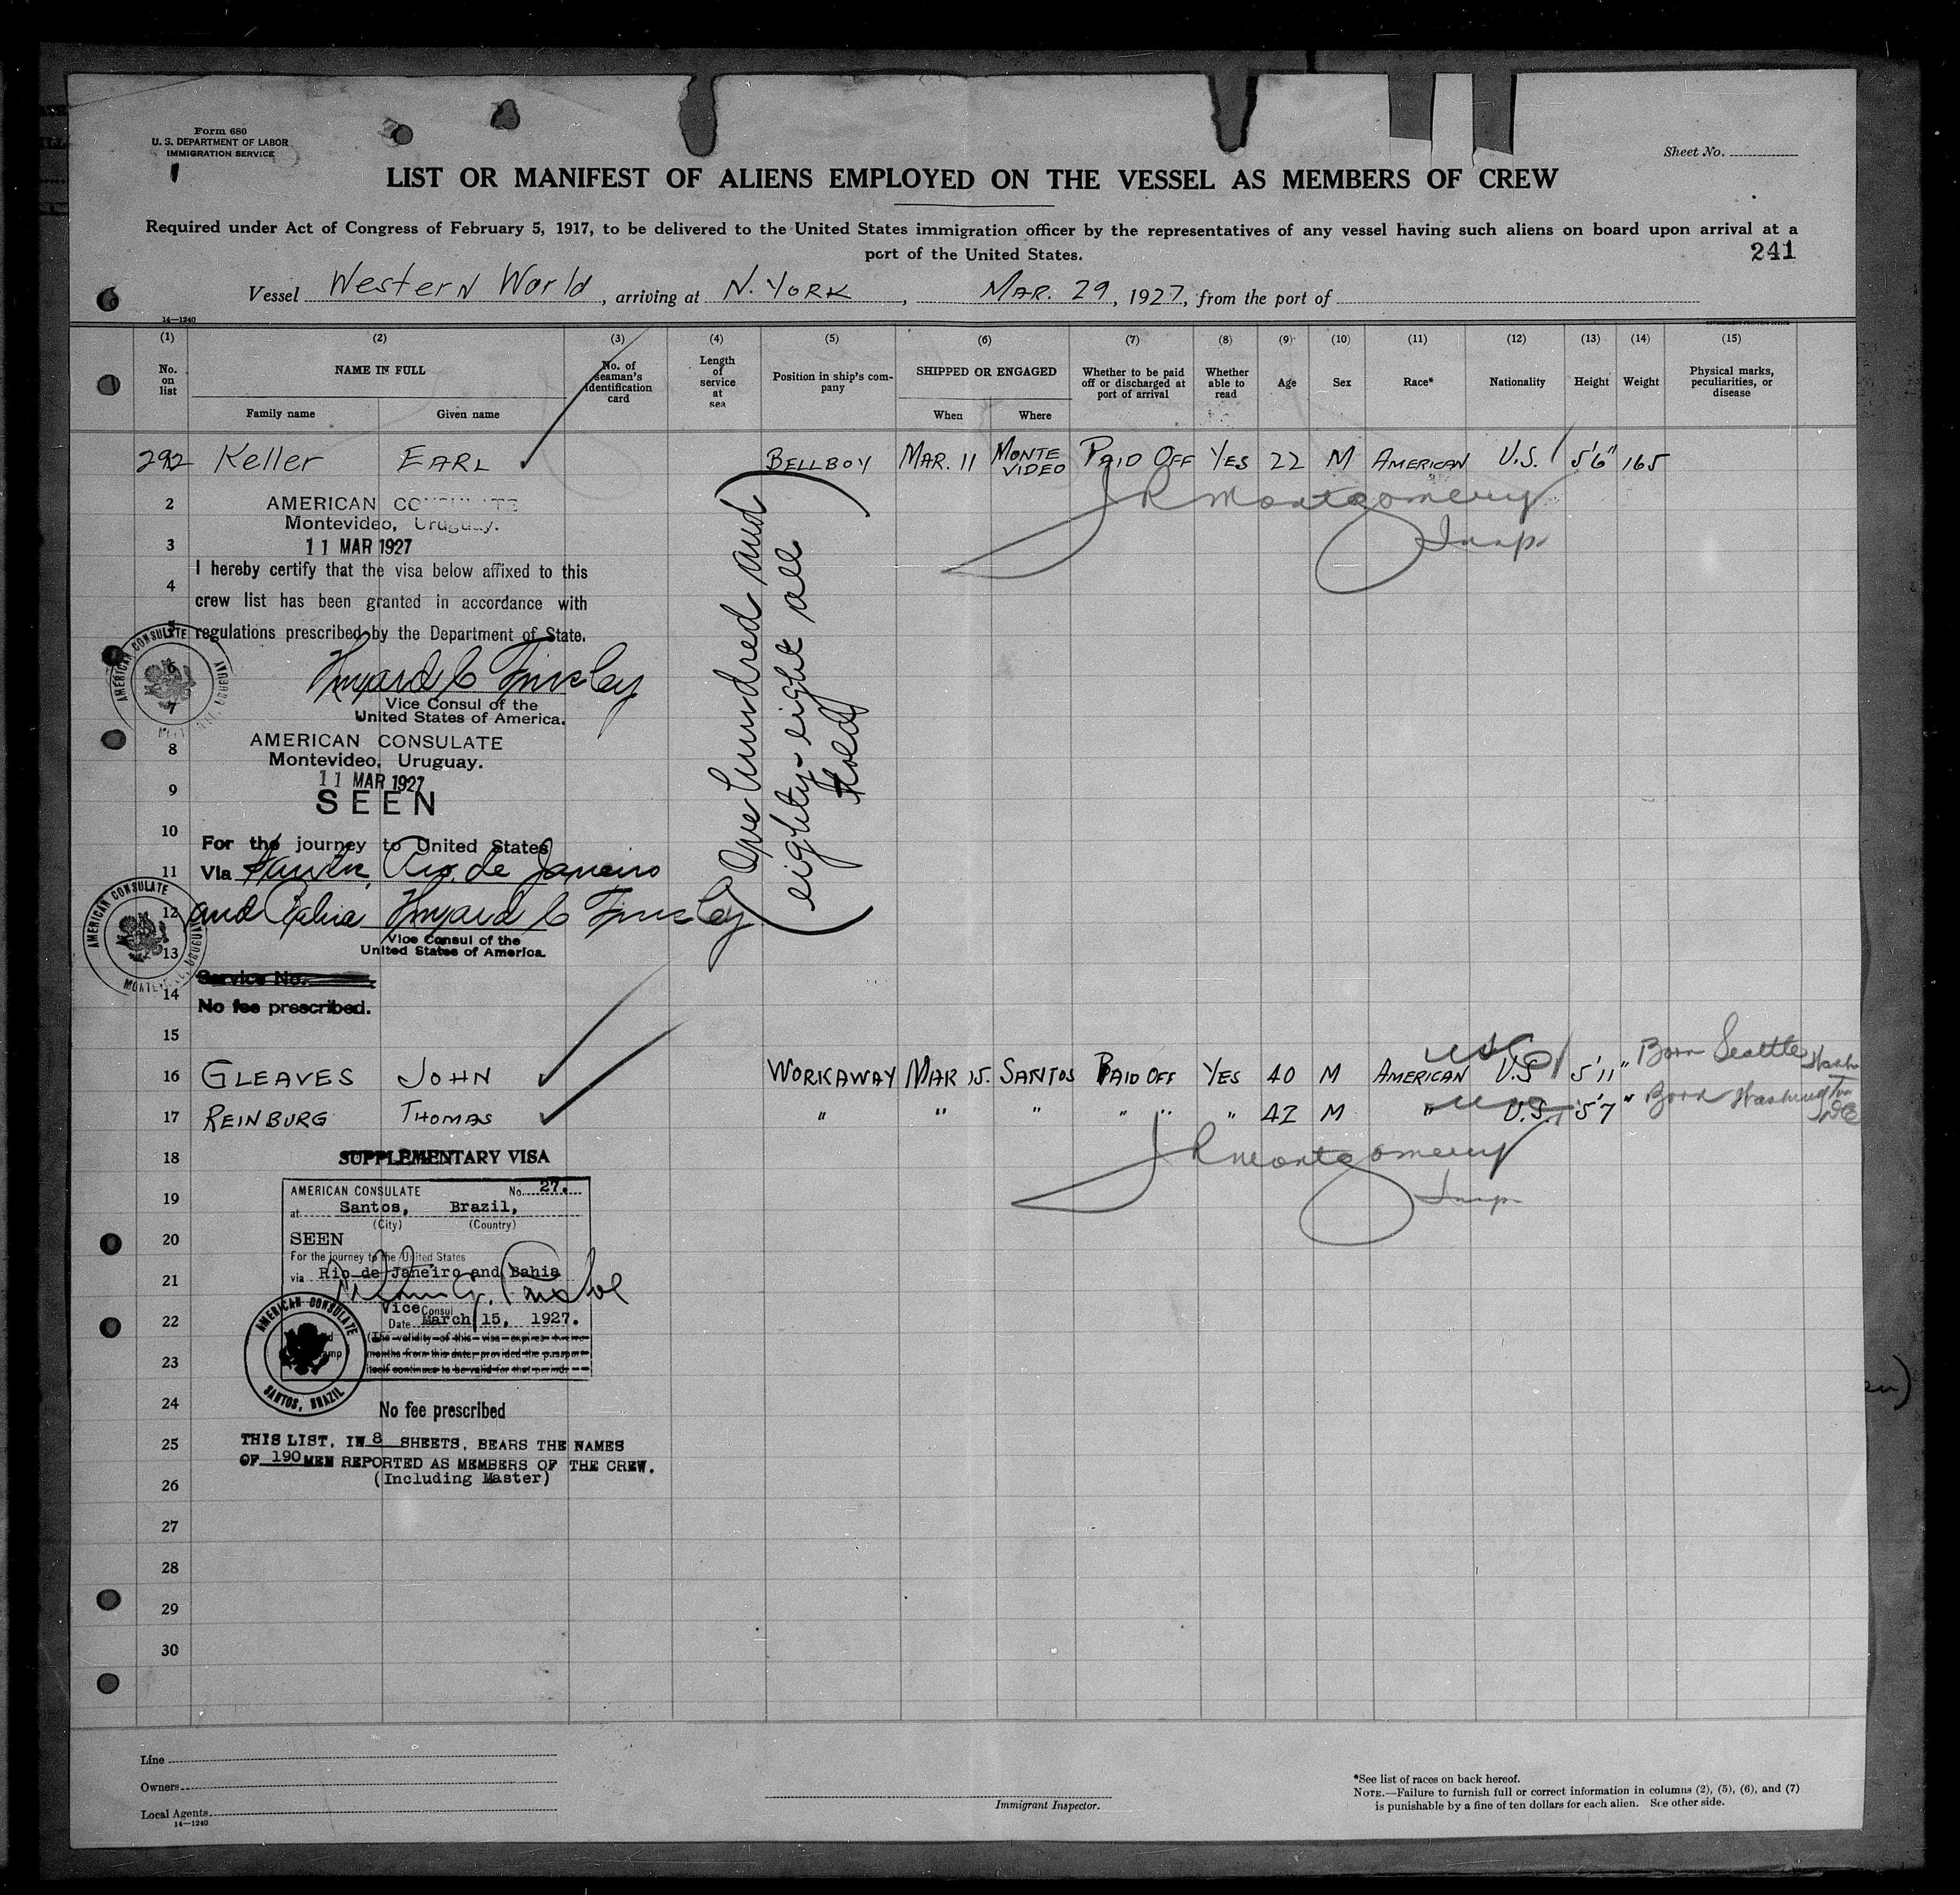 Form 680
U. S. DEPARTMENT OF LABOR
IMMIGRATION SERVICE
Sheet No.
LIST OR MANIFEST OF ALIENS EMPLOYED ON THE VESSEL AS MEMBERS OF CREW
Required under Act of Congress of February 5, 1917, to be delivered to the United States immigration officer by the representatives of any vessel having such aliens on board upon arrival at a
port of the United States.
241
Vessel Western World, arriving at N. York, Mar. 29, 1927, from the port of
14—1240
(1) (2) (3) (4) (5) (6) (7) (8) (9) (10) (11) (12) (13) (14) (15)
No. on list NAME IN FULL No. of seaman's identification card Length of service at sea Position in ship's company SHIPPED OR ENGAGED Whether to be paid off or discharged at port of arrival Whether able to read Age Sex Race* Nationality Height Weight Physical marks, peculiarities, or disease
Family name Given name When Where
292 Keller EARL BELLBOY MAR. 11 MONTE VIDEO PAID OFF YES 22 M AMERICAN U.S. 5'6" 165
J R Montgomery
Insp.
2 AMERICAN CONSULATE
Montevideo, Uruguay.
3 11 MAR 1927
I hereby certify that the visa below affixed to this
4
crew list has been granted in accordance with
5 regulations prescribed by the Department of State.
AMERICAN CONSULATE
6
7 Vice Consul of the
United States of America.
8 AMERICAN CONSULATE
Montevideo, Uruguay.
9 11 MAR 1927
SEEN
10
For the journey to United States
11 Via Rio de Janeiro
12 and Bahia
AMERICAN CONSULATE
Vice Consul of the
13 United States of America.
Service No.
14
No fee prescribed.
(One hundred and
eighty-eight all
told)
15
16 GLEAVES JOHN WORKAWAY MAR 15. SANTOS PAID OFF YES 40 M AMERICAN U.S 5'11" Born Seattle Wash
17 REINBURG THOMAS " " " " " " 42 M " U.S. 5'7" Born Washington DC
J R Montgomery
Insp
18 SUPPLEMENTARY VISA
AMERICAN CONSULATE No. 27.
19 at Santos, Brazil,
(City) (Country)
20 SEEN
For the journey to the United States
21 via Rio de Janeiro and Bahia
Vice Consul
22 Date March 15, 1927.
(The validity of this visa expires twelve
23 months from this date, provided the passport
itself continues to be valid for that period.
AMERICAN CONSULATE
SANTOS, BRAZIL
24 No fee prescribed
25 THIS LIST, IN 8 SHEETS, BEARS THE NAMES
OF 190 MEN REPORTED AS MEMBERS OF THE CREW.
26 (Including Master)
27
28
29
30
Line
Owners
Local Agents
14—1240
Immigrant Inspector.
*See list of races on back hereof.
NOTE.—Failure to furnish full or correct information in columns (2), (5), (6), and (7)
is punishable by a fine of ten dollars for each alien. See other side.